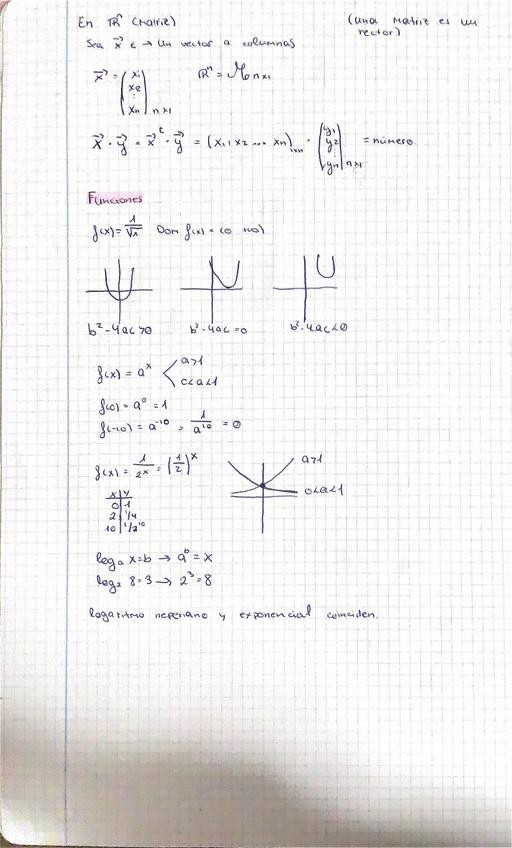 En ℝⁿ (Matriz) (una matriz es un vector)
Sea x⃗ ∈ → un vector a columnas
x⃗ = (x₁ x₂ ⋮ xₙ) n×1 ℝⁿ = ℳ n×1
x⃗ · y⃗ = x⃗ᵗ · y⃗ = (x₁, x₂ ... xₙ)₁ₓₙ · (y₁ y₂ ⋮ yₙ) n×1 = número
Funciones
f(x) = 1/√x Dom f(x) = (0 +∞)
b² - 4ac > 0 b² - 4ac = 0 b² - 4ac < 0
f(x) = aˣ < a>1
0<a<1
f(0) = a⁰ = 1
f(-10) = a⁻¹⁰ = 1/a¹⁰ = 0
f(x) = 1/2ˣ = (1/2)ˣ
a>1
0<a<1
x | y
0 | 1
2 | 1/4
10 | 1/2¹⁰
logₐ x = b → aᵇ = x
log₂ 8 = 3 → 2³ = 8
logaritmo neperiano y exponencial coinciden.